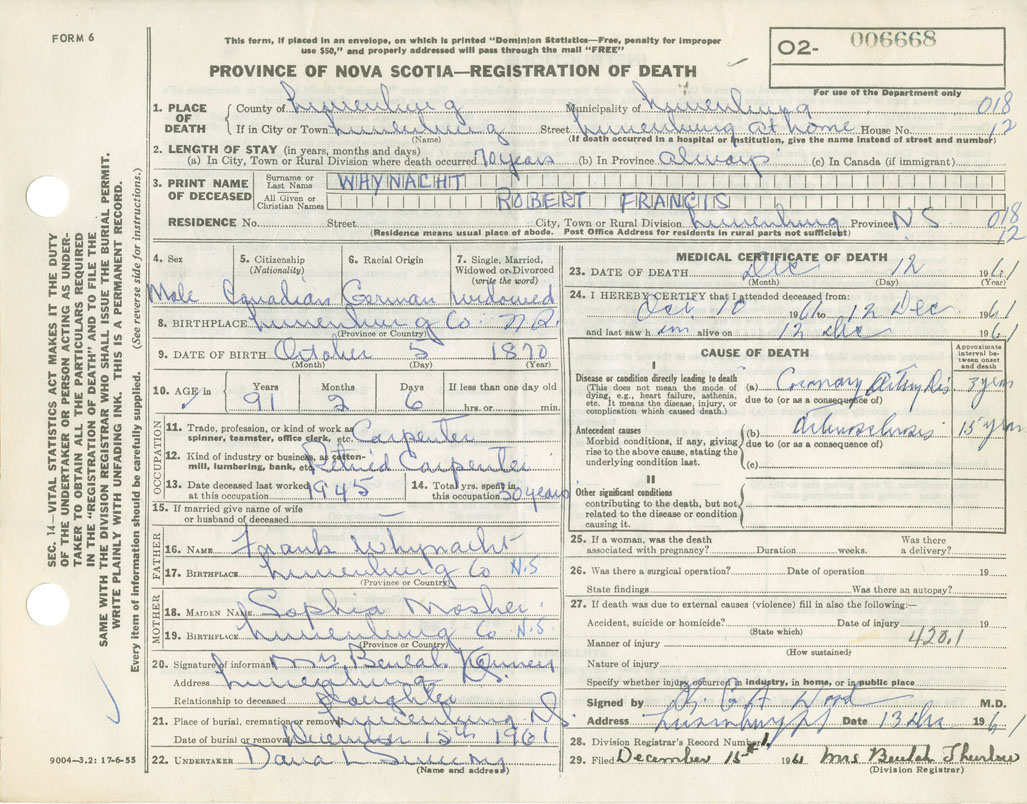 FORM 6
This form, if placed in an envelope, on which is printed "Dominion Statistics—Free, penalty for improper
use $50," and properly addressed will pass through the mail "FREE"
PROVINCE OF NOVA SCOTIA—REGISTRATION OF DEATH
O2- 006668
For use of the Department only
1. PLACE OF DEATH { County of Lunenburg Municipality of Lunenburg 018
If in City or Town Lunenburg Street Lunenburg at home House No. 12
(Name) (If death occurred in a hospital or institution, give the name instead of street and number)
2. LENGTH OF STAY (in years, months and days)
(a) In City, Town or Rural Division where death occurred 70 years (b) In Province always (c) In Canada (if immigrant)
3. PRINT NAME OF DECEASED { Surname or Last Name WHYNACHT
All Given or Christian Names ROBERT FRANCIS
RESIDENCE No. Street City, Town or Rural Division Lunenburg Province N.S 018
(Residence means usual place of abode. Post Office Address for residents in rural parts not sufficient) 12
4. Sex 5. Citizenship (Nationality) 6. Racial Origin 7. Single, Married, Widowed or Divorced (write the word)
Male Canadian German widowed
8. BIRTHPLACE Lunenburg Co
(Province or Country)
9. DATE OF BIRTH October 5 1870
(Month) (Day) (Year)
10. AGE in Years Months Days If less than one day old
91 2 6 hrs. or min.
OCCUPATION
11. Trade, profession, or kind of work as spinner, teamster, office clerk, etc. Carpenter
12. Kind of industry or business, as cotton-mill, lumbering, bank, etc. Retired Carpenter
13. Date deceased last worked at this occupation 1945 14. Total yrs. spent in this occupation 50 years
15. If married give name of wife or husband of deceased —
FATHER
16. NAME Frank Whynacht
17. BIRTHPLACE Lunenburg Co N.S
(Province or Country)
MOTHER
18. MAIDEN NAME Sophia Mosher
19. BIRTHPLACE Lunenburg Co N.S
(Province or Country)
20. Signature of informant Mrs Beulah
Address Lunenburg N.S.
Relationship to deceased Daughter
21. Place of burial, cremation or removal Lunenburg N.S.
Date of burial or removal December 15th 1961
22. UNDERTAKER
(Name and address)
MEDICAL CERTIFICATE OF DEATH
23. DATE OF DEATH Dec 12 1961
(Month) (Day) (Year)
24. I HEREBY CERTIFY that I attended deceased from:
Oct 10 1961 to 12 Dec 1961
and last saw h im alive on 12 Dec 1961
CAUSE OF DEATH
Approximate interval between onset and death
I
Disease or condition directly leading to death (a) Coronary Artery Dis 3 years
(This does not mean the mode of dying, e.g., heart failure, asthenia, etc. It means the disease, injury, or complication which caused death.) due to (or as a consequence of)
Antecedent causes (b) Arteriosclerosis 15 years
Morbid conditions, if any, giving rise to the above cause, stating the underlying condition last. due to (or as a consequence of)
(c)
II
Other significant conditions
contributing to the death, but not related to the disease or condition causing it.
25. If a woman, was the death associated with pregnancy? Duration weeks. Was there a delivery?
26. Was there a surgical operation? Date of operation 19
State findings Was there an autopsy?
27. If death was due to external causes (violence) fill in also the following:—
Accident, suicide or homicide? Date of injury 19
(State which) 420.1
Manner of injury
(How sustained)
Nature of injury
Specify whether injury occurred in industry, in home, or in public place
Signed by Wood M.D.
Address Lunenburg Date 13 Dec 1961
28. Division Registrar's Record Number
29. Filed December 15th 1961 Mrs Beulah
(Division Registrar)
SEC. 14—VITAL STATISTICS ACT MAKES IT THE DUTY
OF THE UNDERTAKER OR PERSON ACTING AS UNDER-
TAKER TO OBTAIN ALL THE PARTICULARS REQUIRED
IN THE "REGISTRATION OF DEATH" AND TO FILE THE
SAME WITH THE DIVISION REGISTRAR WHO SHALL ISSUE THE BURIAL PERMIT.
WRITE PLAINLY WITH UNFADING INK. THIS IS A PERMANENT RECORD.
Every item of information should be carefully supplied. (See reverse side for instructions.)
9004—3.2: 17-6-55